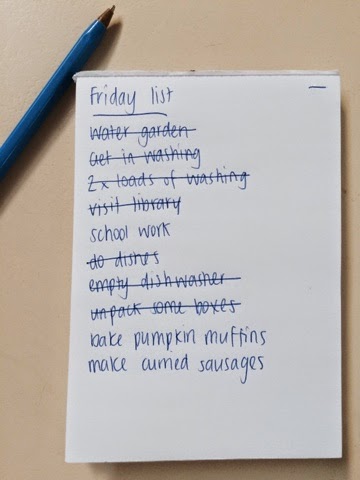 Friday list
water garden
Get in washing
2x loads of washing
visit library
school work
do dishes
empty dishwasher
unpack some boxes
bake pumpkin muffins
make curried sausages